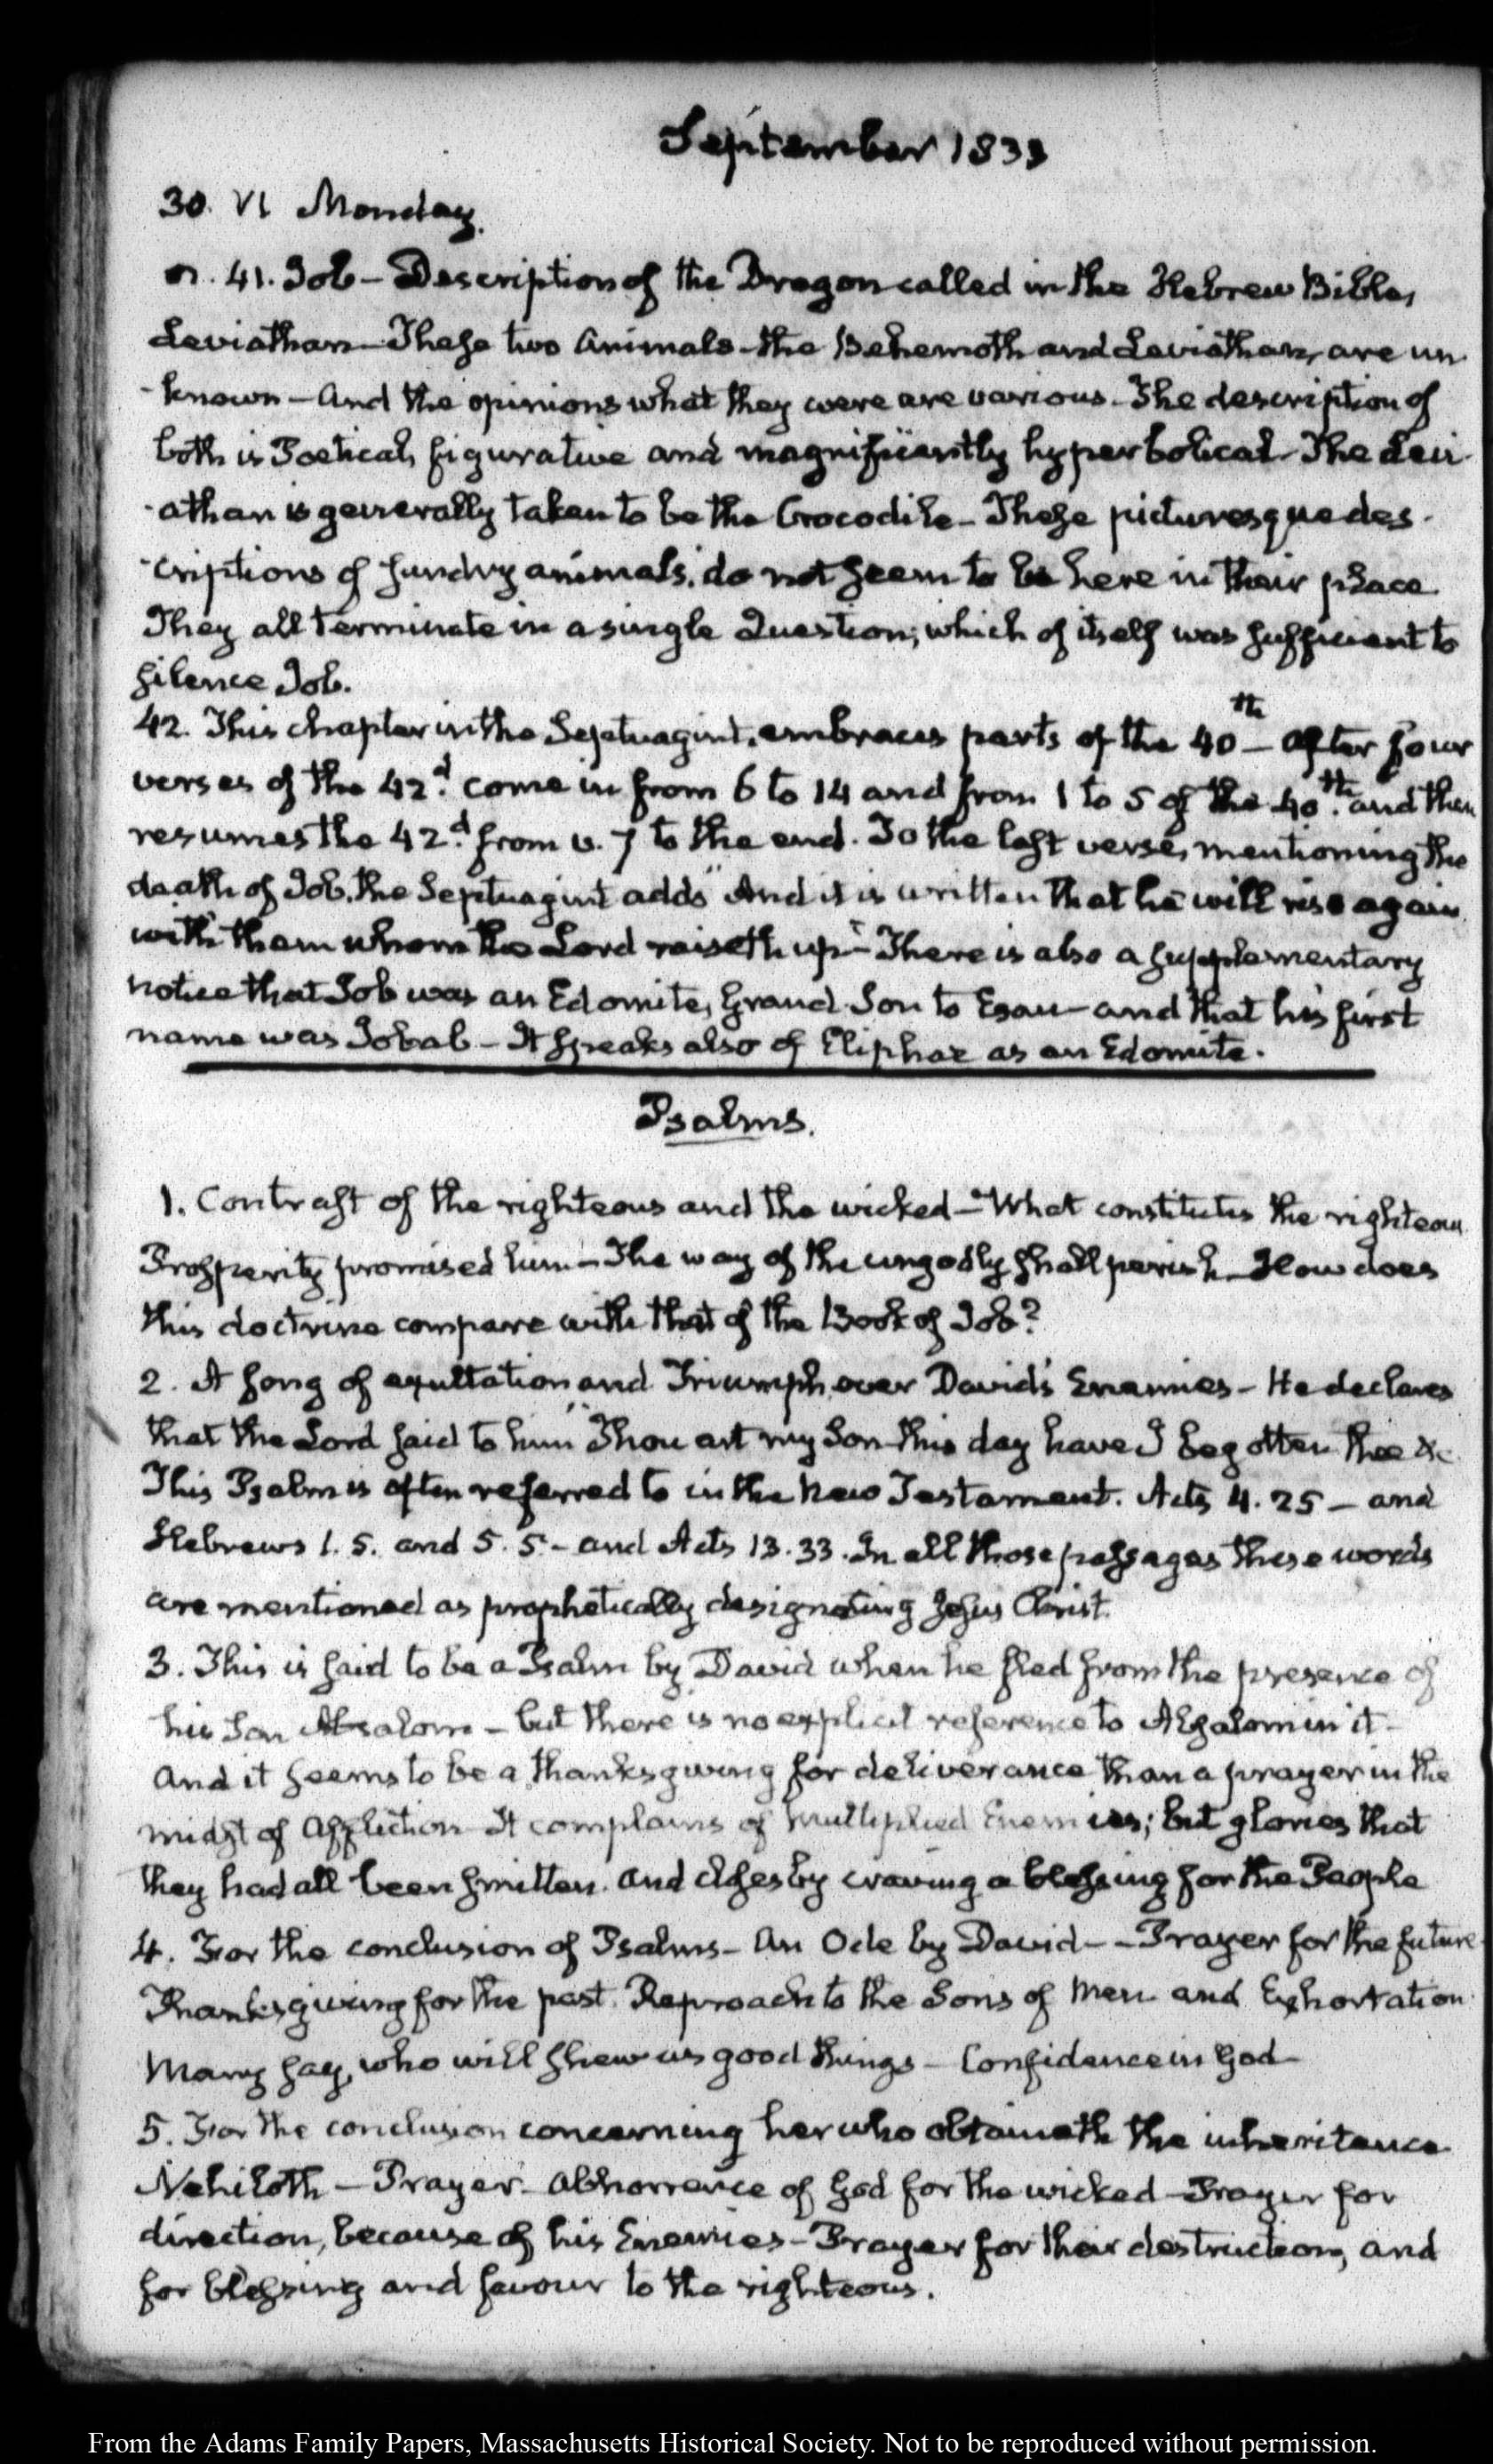 September 1833
30. VI Monday.
41. Job – Description of the Dragon called in the Hebrew Bible,
Leviathan – These two Animals – the Behemoth and Leviathan, are un-
-known – And the opinions what they were are various – The description of
both is Poetical, figurative and magnificently hyperbolical – The Levi-
-athan is generally taken to be the Crocodile – These picturesque des-
-criptions of sundry animals, do not seem to be here in their place
They all terminate in a single Question; which of itself was sufficient to
silence Job.
42. This chapter in the Septuagint, embraces parts of the 40th – After four
verses of the 42d. come in from 6 to 14 and from 1 to 5 of the 40th. and then
resumes the 42d. from v. 7 to the end. To the last verse, mentioning the
death of Job, the Septuagint adds "And it is written that he will rise again
with them whom the Lord raiseth up" – There is also a supplementary
notice that Job was an Edomite, Grand Son to Esau – and that his first
name was Jobab – It speaks also of Eliphaz as an Edomite.
Psalms.
1. Contrast of the righteous and the wicked – What constitutes the righteous
Prosperity promised him – The way of the ungodly shall perish – How does
this doctrine compare with that of the Book of Job?
2. A Song of exultation and Triumph over David's Enemies – He declares
that the Lord said to him "Thou art my Son this day have I begotten thee &c
This Psalm is often referred to in the New Testament. Acts 4. 25 – and
Hebrews 1. 5. and 5. 5 – and Acts 13. 33. In all those passages these words
are mentioned as prophetically designating Jesus Christ.
3. This is said to be a Psalm by David when he fled from the presence of
his Son Absalom – but there is no explicit reference to Absalom in it –
And it seems to be a thanksgiving for deliverance than a prayer in the
midst of Affliction – It complains of multiplied Enemies; but glories that
they had all been smitten. and closes by craving a blessing for the People
4. For the conclusion of Psalms – An Ode by David – – Prayer for the future
Thanksgiving for the past. Reproach to the Sons of Men and Exhortation
Many say, who will shew us good things – Confidence in God –
5. For the conclusion concerning her who obtaineth the inheritance
Nehiloth – Prayer – abhorrence of God for the wicked – Prayer for
direction, because of his Enemies – Prayer for their destruction, and
for blessing and favour to the righteous.
From the Adams Family Papers, Massachusetts Historical Society. Not to be reproduced without permission.